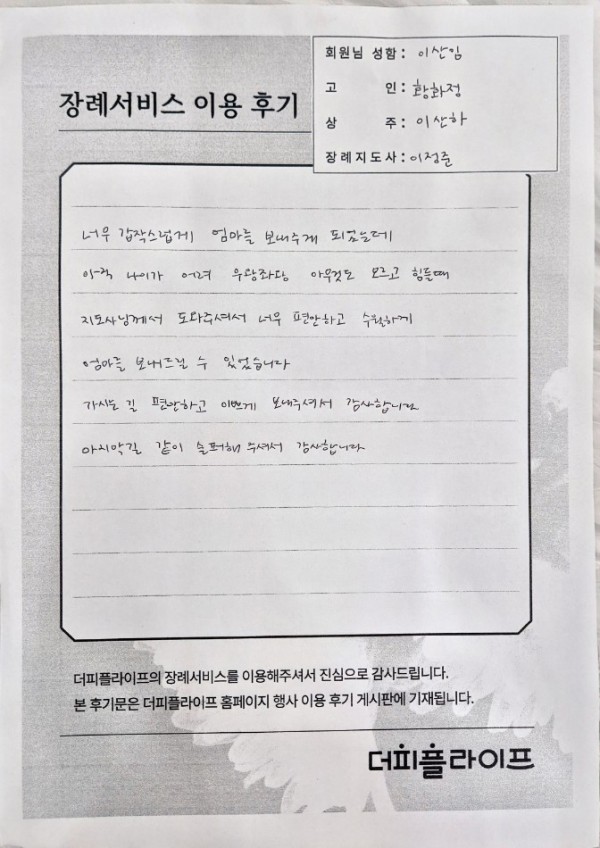 회원님 성함 : 이산임
고 인 : 황화정
상 주 : 이산하
장례지도사 : 이정준
장례서비스 이용 후기
너무 갑작스럽게 엄마를 보내주게 되었는데
아직 나이가 어려 우왕좌왕 아무것도 모르고 힘들때
지도사님께서 도와주셔서 너무 편안하고 수월하게
엄마를 보내드릴 수 있었습니다
가시는 길 편안하고 이쁘게 보내주셔서 감사합니다
마지막길 같이 슬퍼해 주셔서 감사합니다
더피플라이프의 장례서비스를 이용해주셔서 진심으로 감사드립니다.
본 후기문은 더피플라이프 홈페이지 행사 이용 후기 게시판에 기재됩니다.
더피플라이프